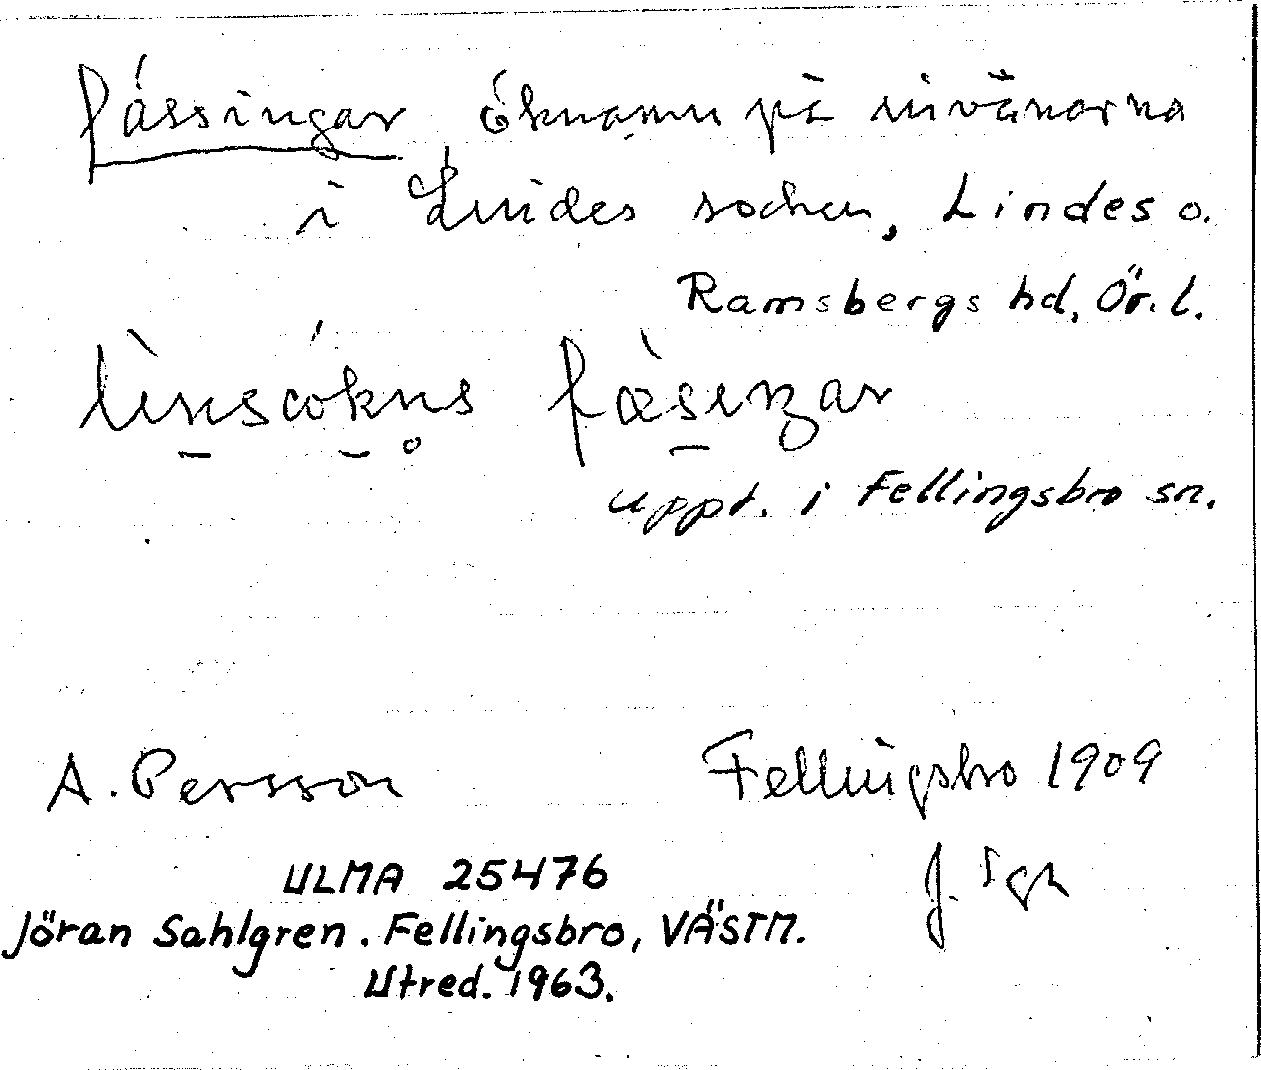 fássingar öknamn på invånarna
i Lindes socken, Lindes o.
Ramsbergs hd, Ör. l.
uppt. i Fellingsbro sn.
A. Persson Fellingsbro 1909
J. Sgn
ULMA 25476
Jöran Sahlgren. Fellingsbro, VÄSTM.
Utred. 1963.